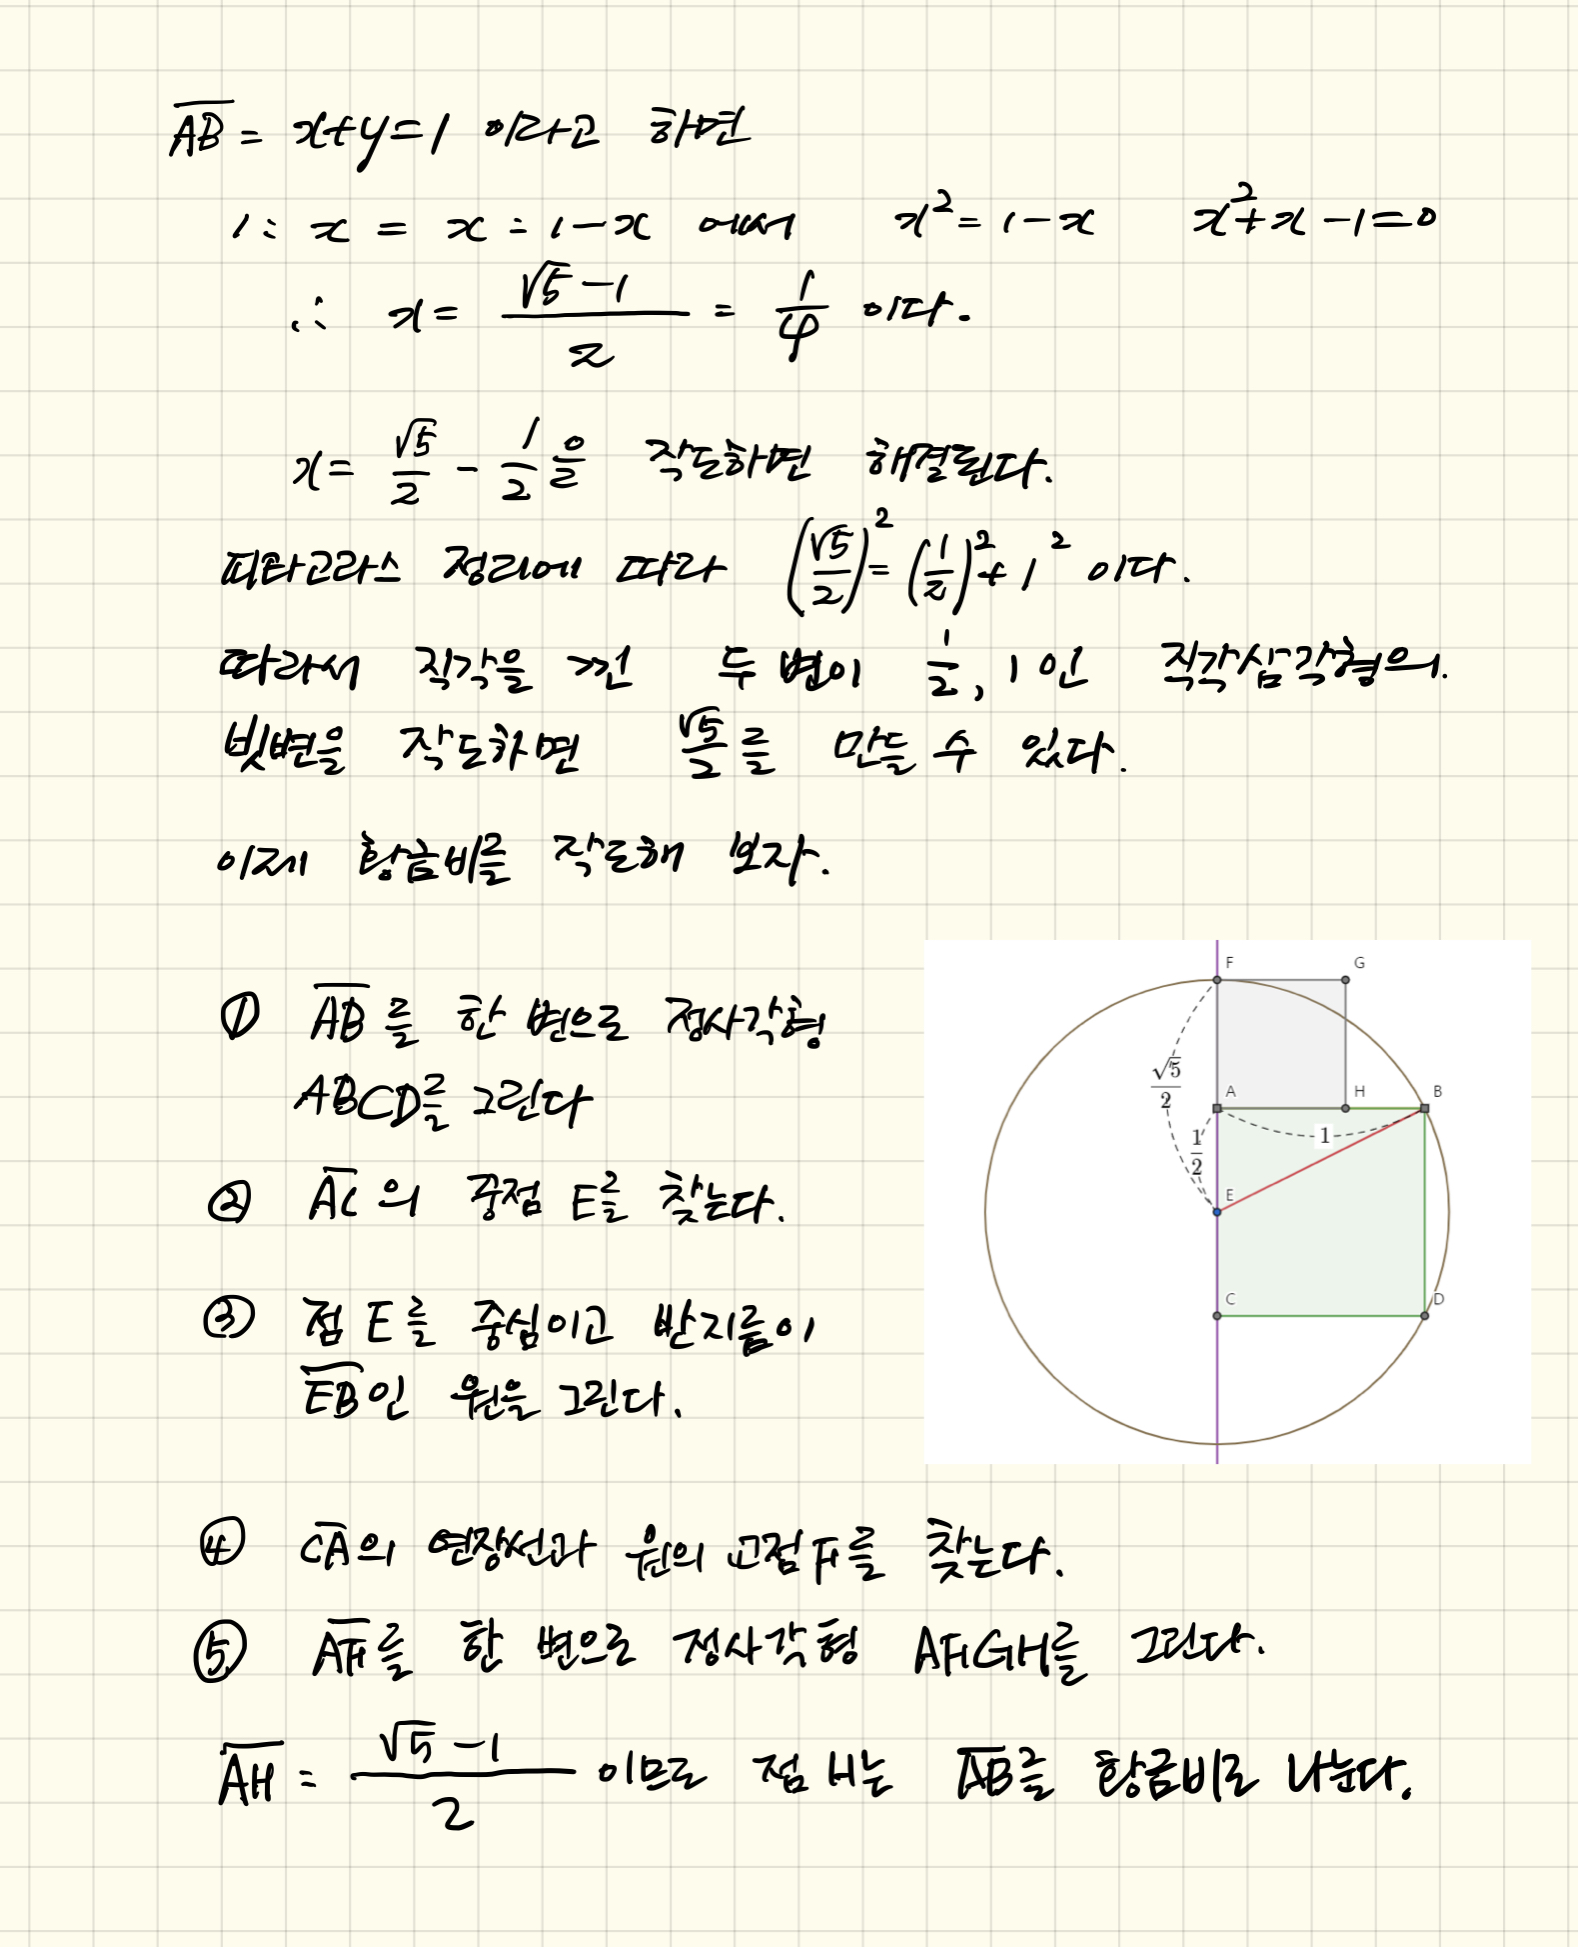 AB = x+y=1 이라고 하면
1 : x = x : 1-x 에서 x² = 1-x x²+x-1=0
∴ x = (√5-1)/2 = 1/φ 이다.
x = √5/2 - 1/2 을 작도하면 해결된다.
피타고라스 정리에 따라 (√5/2)² = (1/2)² + 1² 이다.
따라서 직각을 낀 두 변이 1/2, 1인 직각삼각형의
빗변을 작도하면 √5/2를 만들 수 있다.
이제 황금비를 작도해 보자.
① AB를 한 변으로 정사각형
ABCD를 그린다
② AC의 중점 E를 찾는다.
③ 점 E를 중심이고 반지름이
EB인 원을 그린다.
F G
√5/2
A H B
1
1/2
E
C D
④ CA의 연장선과 원의 교점 F를 찾는다.
⑤ AF를 한 변으로 정사각형 AFGH를 그린다.
AH = (√5-1)/2 이므로 점 H는 AB를 황금비로 나눈다.